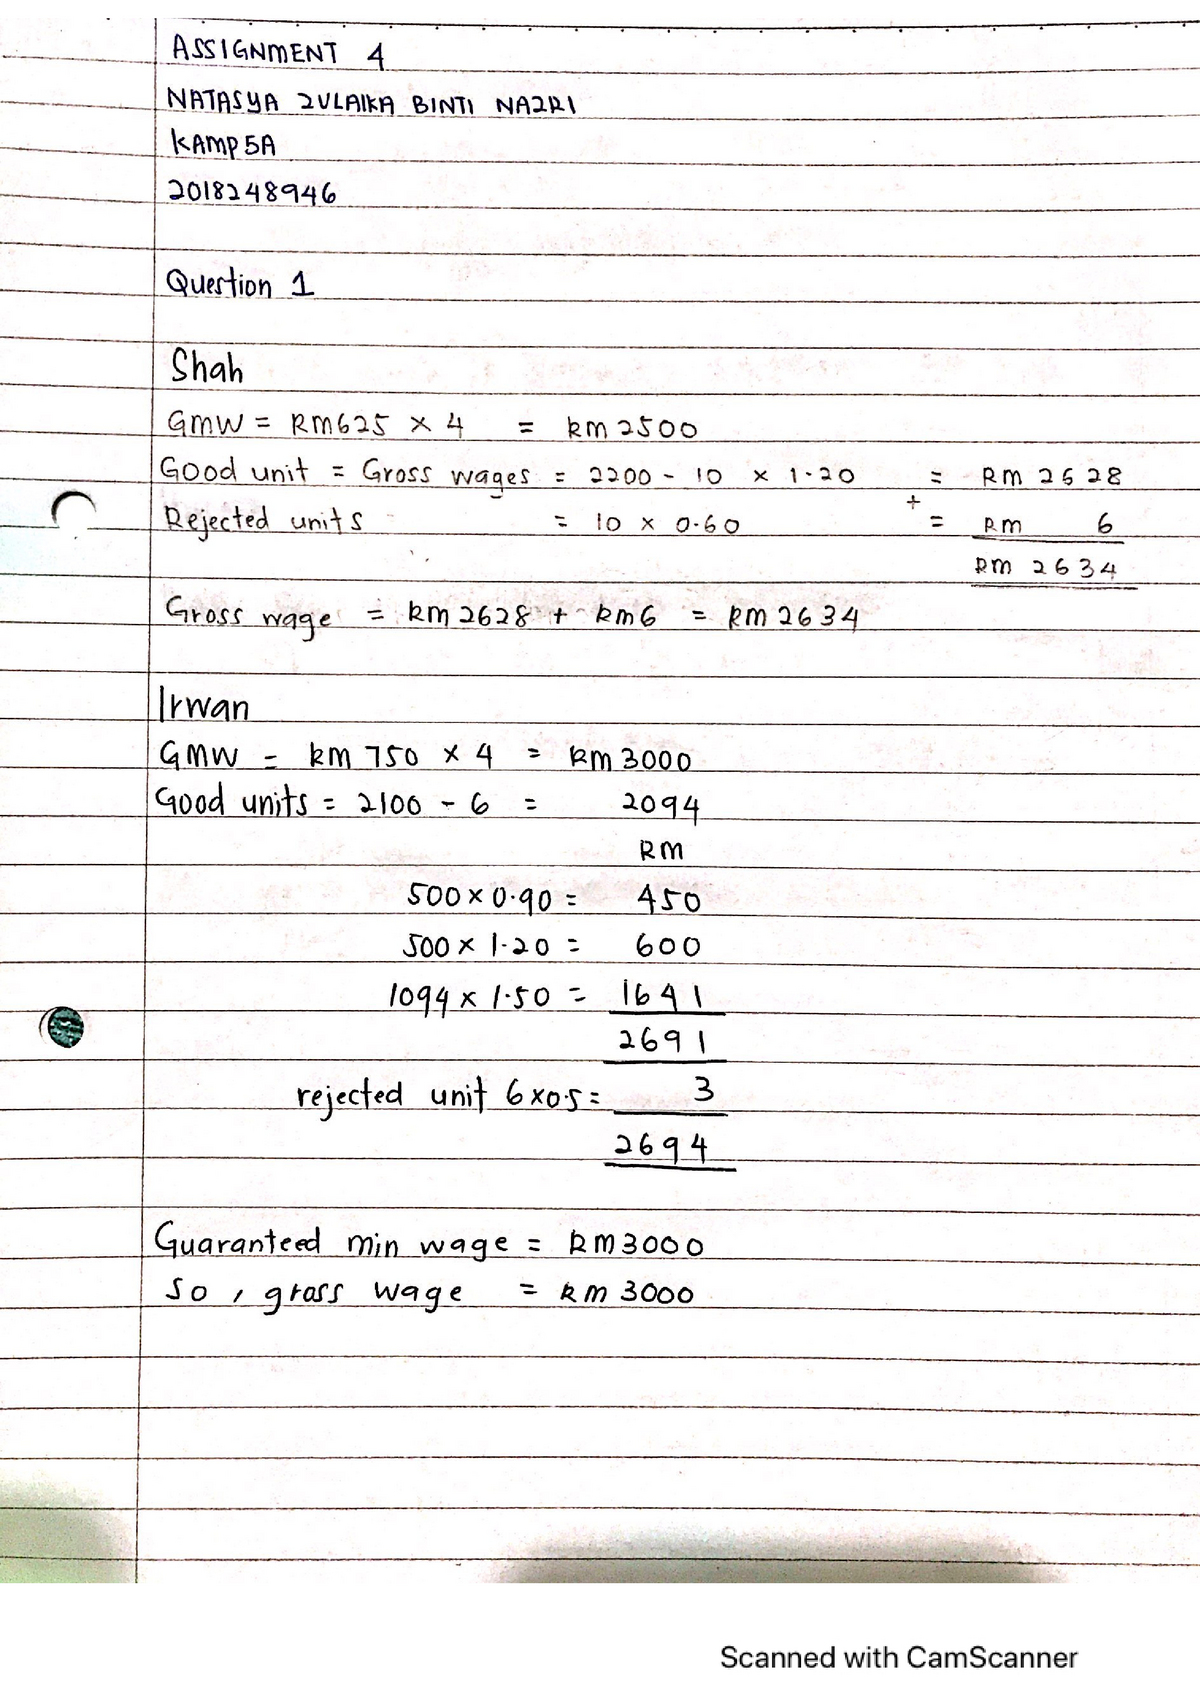 ASSIGNMENT 4
NATASYA ZULAIKA BINTI NAZRI
KAMP5A
2018248946
Question 1
Shah
GMW = RM625 × 4 = RM 2500
Good unit = Gross wages = 2200 - 10 × 1.20 = RM 2628
Rejected units = 10 × 0.60 + = RM 6
RM 2634
Gross wage = RM 2628 + RM6 = RM 2634
Irwan
GMW = RM 750 × 4 = RM 3000
Good units = 2100 - 6 = 2094
RM
500 × 0.90 = 450
500 × 1.20 = 600
1094 × 1.50 = 1641
2691
rejected unit 6×0.5 = 3
2694
Guaranteed min wage = RM3000
So, gross wage = RM 3000
Scanned with CamScanner